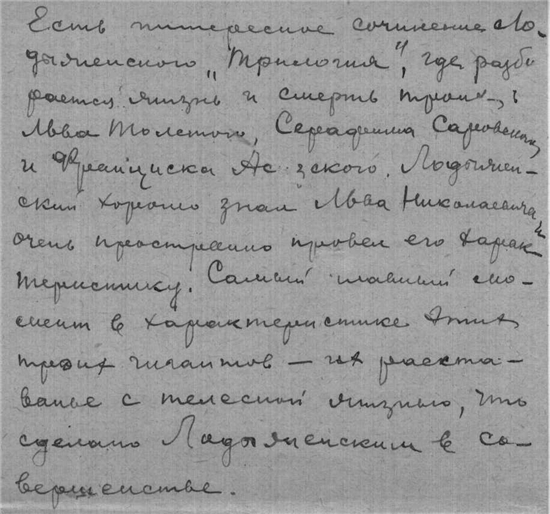 Есть интересное сочинение Ло-
дыженского „Трилогия", где разби
рается жизнь и смерть троих
Льва Толстого, Серафима Саровского,
и Франциска Ас зского. Лодыжен-
ский хорошо знал Льва Николаевича и
очень пространно провел его харак
теристику. Самый главный мо-
мент в характеристике этих
троих гигантов — их расста-
ванье с телесной жизнью, что
сделано Лодыженским в со-
вершенстве.